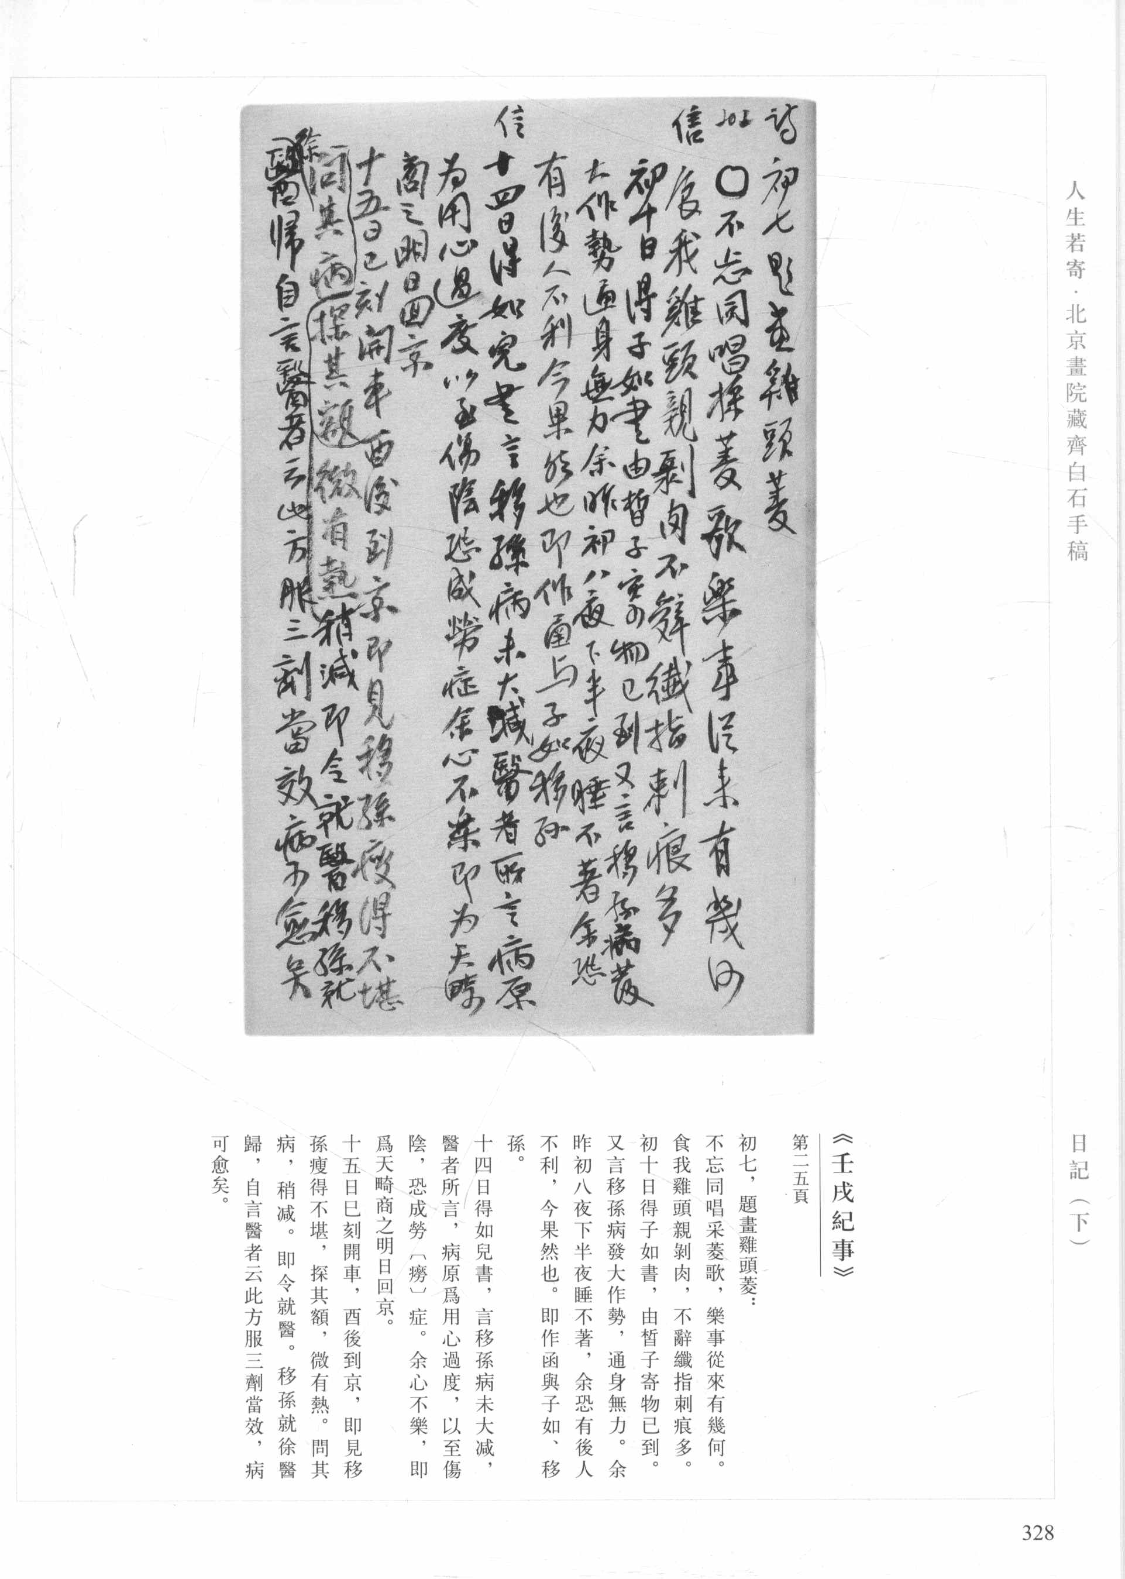 人生若寄·北京畫院藏齊白石手稿
日記(下)
詩 初七題畫雞頭菱
202 〇不忘同唱採菱歌樂事從來有幾何
信 食我雞頭親剝肉不辭纖指刺痕多
初十日得子如書由皙子寄物已到又言移孫病發
大作勢通身無力余昨初八夜下半夜睡不著余恐
有後人不利今果然也即作函与子如移孫
信 十四日得如兒書言移孫病未大減醫者所言病原
为用心過度以至傷陰恐成勞症余心不樂即为天畸
商之明日回京
十五日巳刻開車酉後到京即見移孫瘦得不堪
問其病探其額微有熱稍減即令就醫移孫就
徐醫歸自言醫者云此方服三劑當效病可愈矣
《壬戌紀事》
第二五頁
初七，題畫雞頭菱：
不忘同唱采菱歌，樂事從來有幾何。
食我雞頭親剝肉，不辭纖指刺痕多。
初十日得子如書，由皙子寄物已到。
又言移孫病發大作勢，通身無力。余
昨初八夜下半夜睡不著，余恐有後人
不利，今果然也。即作函與子如、移
孫。
十四日得如兒書，言移孫病未大減，
醫者所言，病原爲用心過度，以至傷
陰，恐成勞〔癆〕症。余心不樂，即
爲天畸商之明日回京。
十五日巳刻開車，酉後到京，即見移
孫瘦得不堪，探其額，微有熱。問其
病，稍減。即令就醫。移孫就徐醫
歸，自言醫者云此方服三劑當效，病
可愈矣。
328